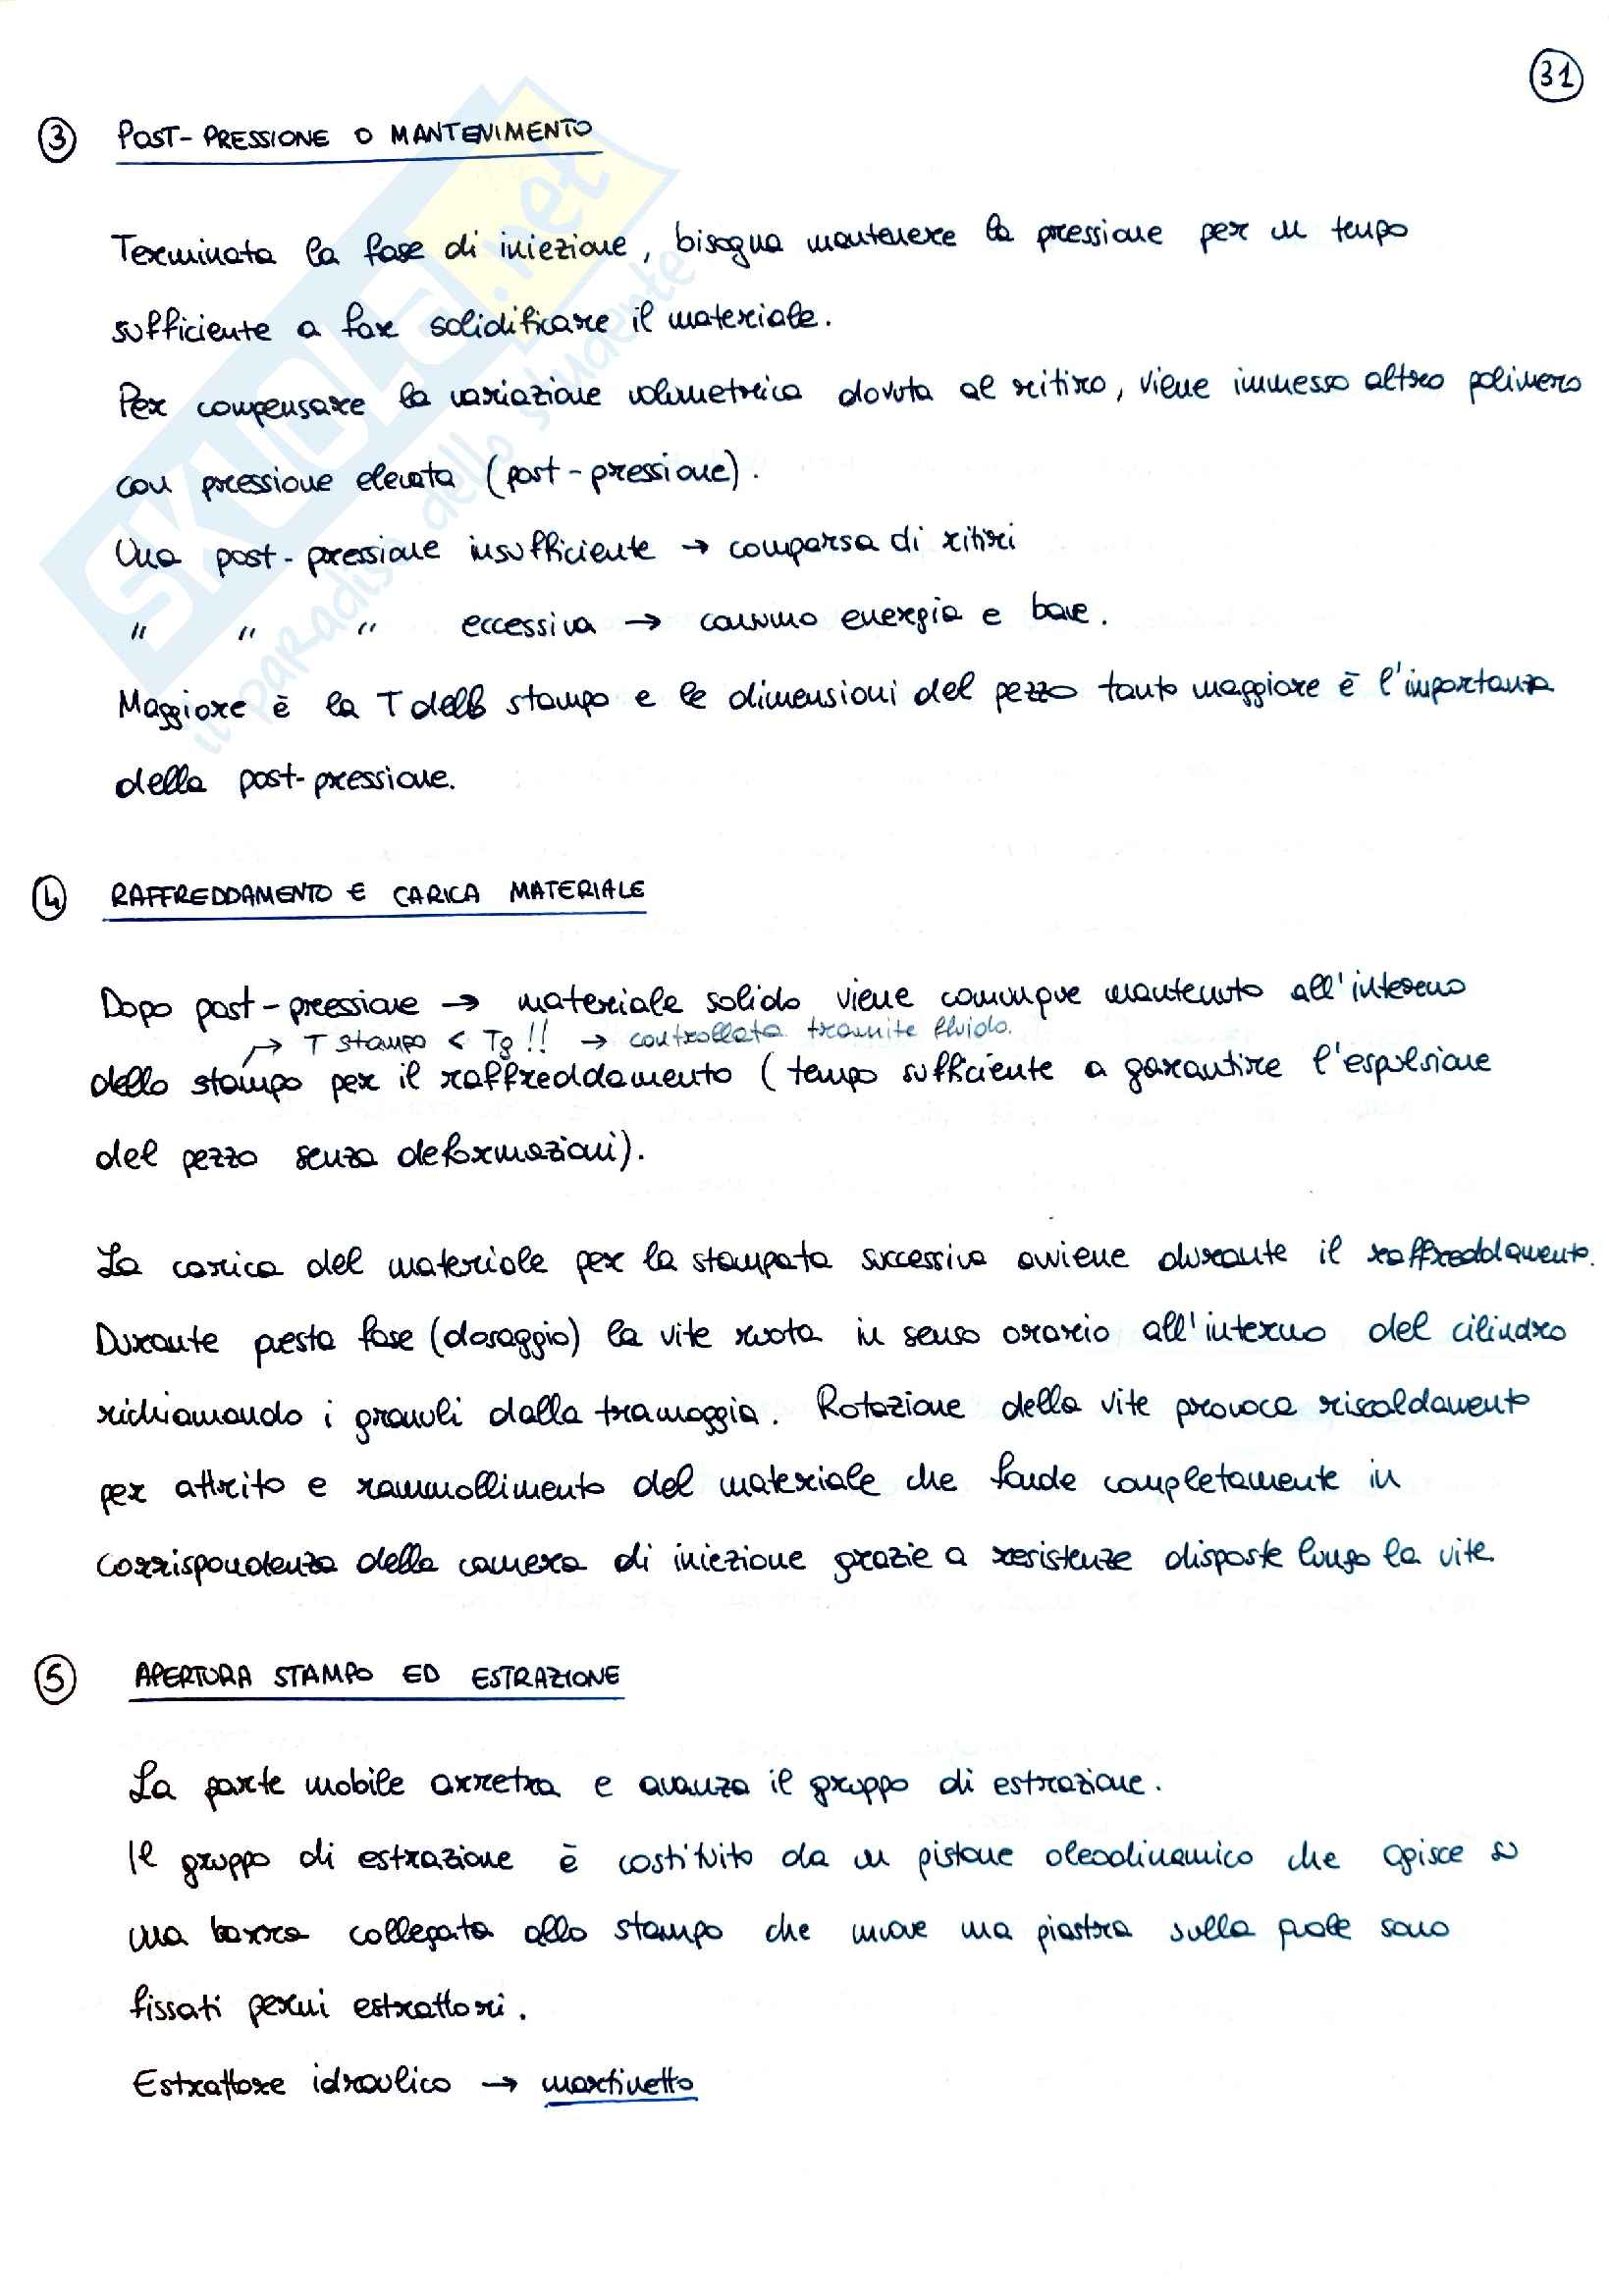 31
3 POST-PRESSIONE O MANTENIMENTO
Terminata la fase di iniezione, bisogna mantenere la pressione per un tempo
sufficiente a far solidificare il materiale.
Per compensare la variazione volumetrica dovuta al ritiro, viene immesso altro polimero
con pressione elevata (post-pressione).
Una post-pressione insufficiente → comparsa di ritiri
" " " eccessiva → consumo energia e bave.
Maggiore è la T dello stampo e le dimensioni del pezzo tanto maggiore è l'importanza
della post-pressione.
4 RAFFREDDAMENTO E CARICA MATERIALE
Dopo post-pressione → materiale solido viene comunque mantenuto all'interno
→ T stampo < Tg !! → controllata tramite fluido.
dello stampo per il raffreddamento (tempo sufficiente a garantire l'espulsione
del pezzo senza deformazioni).
La carica del materiale per la stampata successiva avviene durante il raffreddamento.
Durante questa fase (dosaggio) la vite ruota in senso orario all'interno del cilindro
richiamando i granuli dalla tramoggia. Rotazione della vite provoca riscaldamento
per attrito e rammollimento del materiale che fonde completamente in
corrispondenza della camera di iniezione grazie a resistenze disposte lungo la vite.
5 APERTURA STAMPO ED ESTRAZIONE
La parte mobile arretra e avanza il gruppo di estrazione.
Il gruppo di estrazione è costituito da un pistone oleodinamico che agisce su
una barra collegata allo stampo che muove una piastra sulla quale sono
fissati perni estrattori.
Estrattore idraulico → martinetto
SKUOLA.net
il paradiso dello studente